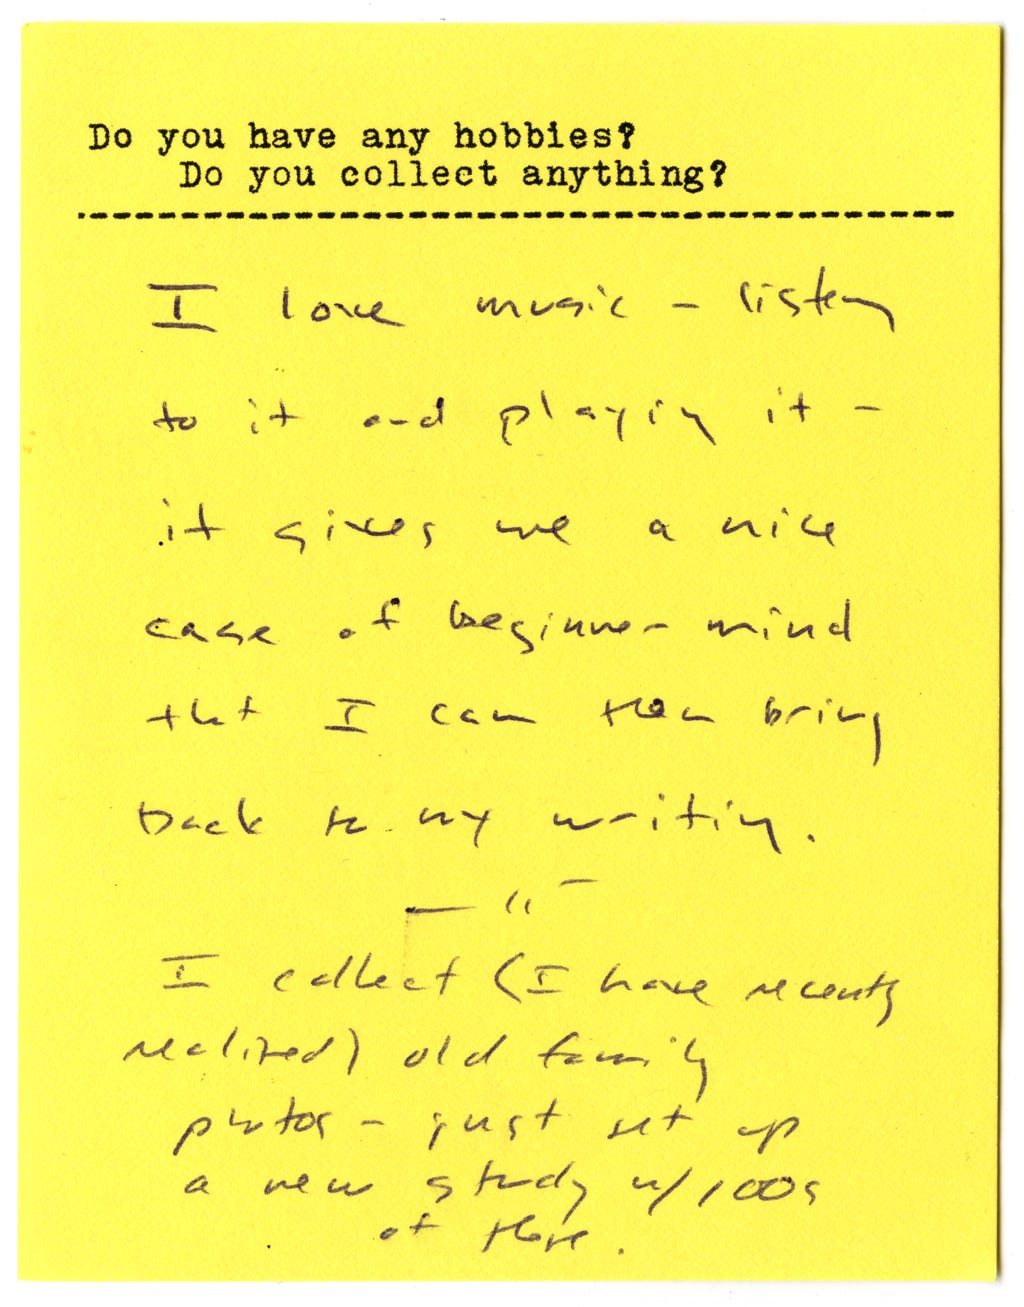 Do you have any hobbies?
Do you collect anything?
I love music - listening
to it and playing it -
it gives me a nice
case of beginner mind
that I can then bring
back to my writing.
— " —
I collect (I have recently
realized) old family
photos - just set up
a new study w/ 100s
of these.